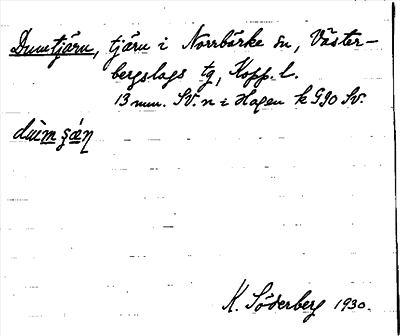 Dumtjärn, tjärn i Norrbärke sn, Väster-
bergslags tg, Kopp. l.
13 mm. SV. n i Hagen k G90 SV.
K. Söderberg 1930.